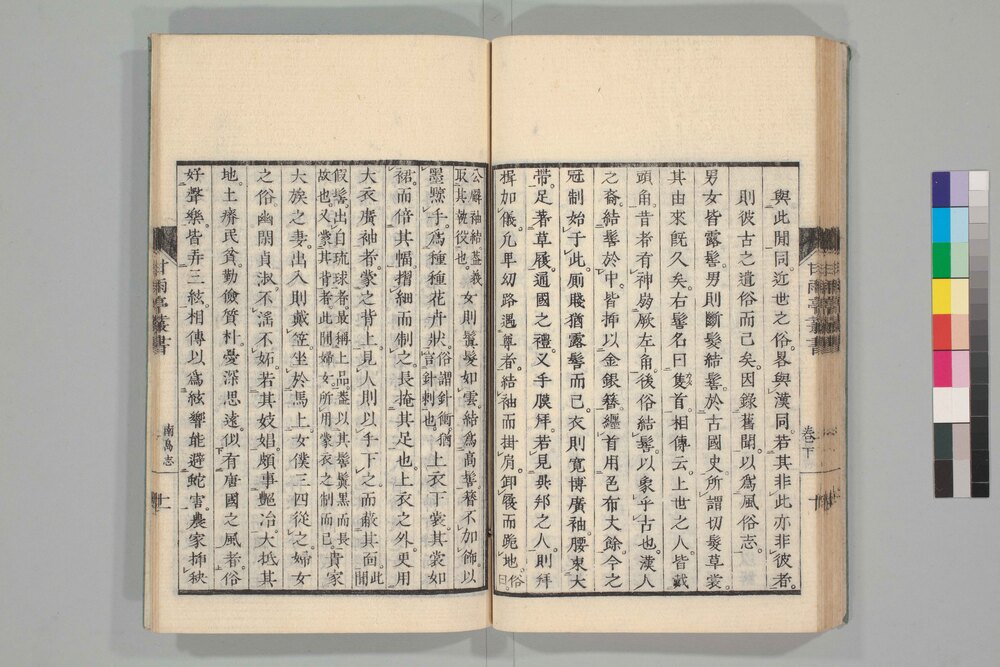 與此間同近世之俗畧與漢同若其非此亦非彼者
則彼古之遺俗而已矣因錄舊聞以爲風俗志
男女皆露髻男則斷髮結髻於古國史所謂切髮草裳
其由來既久矣右髻名曰隻首相傳云上世之人皆戴
頭角昔者有神毀厥左角後俗結髻以象乎古也漢人
之裔結髻於中皆揷以金銀簪纏首用色布大餘今之
冠制始于此厮賤猶露髻而已衣則寬博廣袖腰束大
帶足著草屐通國之禮叉手膜拜若見異邦之人則拜
揖加儀凡卑幼路遇尊者結袖而掛肩卸屐而跪地俗曰
公癖袖結蓋義取其執役也女則鬒髮如雲結爲高髻簪不加飾以
墨黥手爲種種花卉狀俗謂針衝猶言針刺也上衣下裳其裳如
裙而倍其幅摺細而制之長掩其足也上衣之外更用
大衣廣袖者蒙之背上見人則以手下之而蔽其面此間
假髻出自琉球者最稱上品蓋以其髻鬒黑而長故也又蒙其背者此間婦女所用蒙衣之制而已貴家
大族之妻出入則戴笠坐於馬上女僕三四從之婦女
之俗幽閑貞淑不淫不妬若其妓娼頗事艶冶大抵其
地土瘠民貧勤儉質朴憂深思遠似有唐國之風者俗
好聲樂皆弄三絃相傳以爲絃響能避蛇害農家揷秧
甘雨亭叢書
卷下
十
甘雨亭叢書
南島志
十一